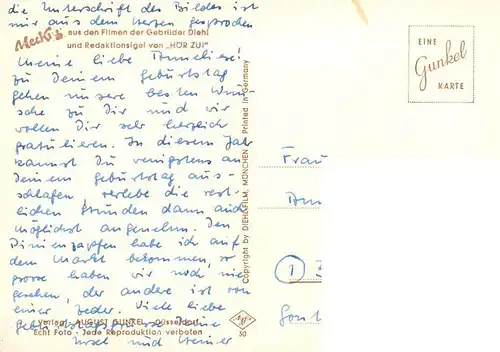 die Unterschrift des Bildes ist
mir aus dem Herzen gesprochen
Mecki aus den Filmen der Gebrüder Diehl
und Redaktionsigel von „HÖR ZU!"
Meine liebe Anneliese!
zu Deinem Geburtstag
gehen unsere besten Wün-
sche zu Dir und wir
wollen Dir sehr herzlich
gratulieren. In diesem Jahr
kannst Du wenigstens an
Deinem Geburtstag aus-
schlafen, verlebe die rest-
lichen Stunden dann auch
möglichst angenehm. Den
Pinienzapfen habe ich auf
dem Markt bekommen, so
grosse haben wir noch nie
gesehen, der andere ist von
einer Zeder. Viele liebe
Geburtstagsgrüsse Deine
Ursel und Werner
Verlag: AUGUST GUNKEL · Düsseldorf
Echt Foto · Jede Reproduktion verboten
Copyright by DIEHL-FILM, MÜNCHEN · Printed in Germany
Agfa
50
EINE
Gunkel
KARTE
Frau
Ann
1